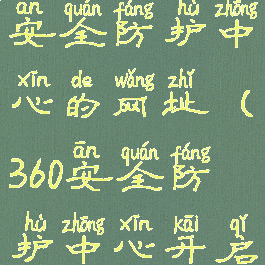 ān quán fáng hù zhōng
安全防护中
xīn de wǎng zhǐ
心的网址(
ān quán fáng
360安全防
hù zhōng xīn kāi qǐ
护中心开启